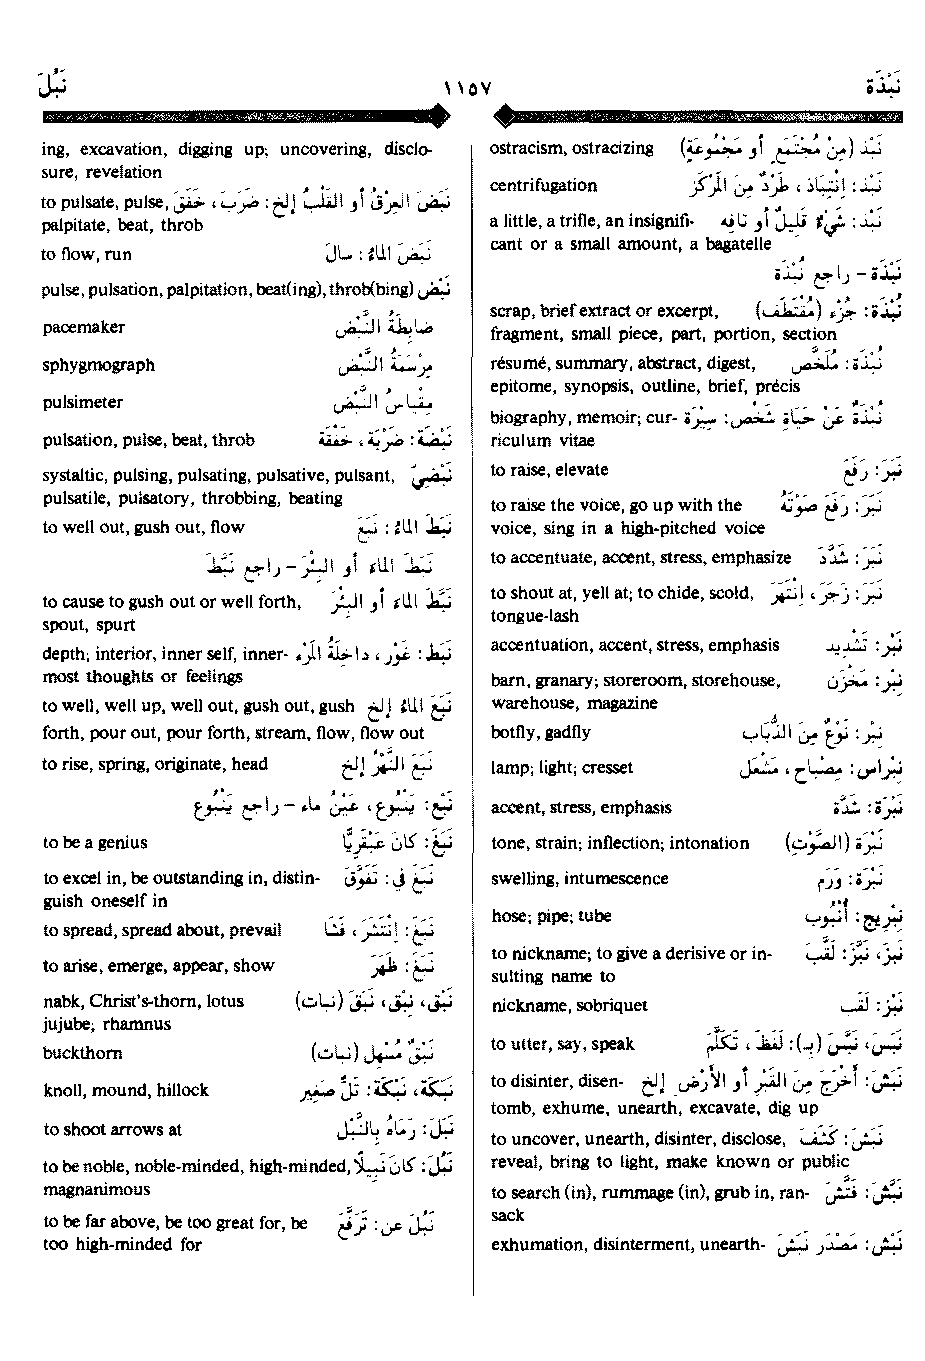 نَبْذَة
١١٥٧
نَبُلَ
نَبْذ (مِنْ مُجْتَمَعٍ أو مَجْمُوعَةٍ) ostracism, ostracizing
نَبْذ: اِنْتِبَاذ، طَرْدٌ مِنَ المَرْكَز centrifugation
نَبْذ: شَيْءٌ قَلِيلٌ أو تَافِه a little, a trifle, an insignifi-
cant or a small amount, a bagatelle
نَبْذَة - راجع نُبْذَة
نُبْذَة: جُزْء (مُقْتَطَف) scrap, brief extract or excerpt,
fragment, small piece, part, portion, section
نُبْذَة: مُلَخَّص résumé, summary, abstract, digest,
epitome, synopsis, outline, brief, précis
نُبْذَةٌ عَنْ حَيَاةِ شَخْص: سِيْرَة biography, memoir; cur-
riculum vitae
نَبَرَ: رَفَعَ to raise, elevate
نَبَرَ: رَفَعَ صَوْتَهُ to raise the voice, go up with the
voice, sing in a high-pitched voice
نَبَرَ: شَدَّدَ to accentuate, accent, stress, emphasize
نَبَرَ: زَجَرَ، اِنْتَهَرَ to shout at, yell at; to chide, scold,
tongue-lash
نَبْر: تَشْدِيد accentuation, accent, stress, emphasis
نِبْر: مَخْزَن barn, granary; storeroom, storehouse,
warehouse, magazine
نِبْر: نَوْعٌ مِنَ الذُّبَاب botfly, gadfly
نِبْرَاس: مِصْبَاح، مَشْعَل lamp; light; cresset
نَبْرَة: شَدَّة accent, stress, emphasis
نَبْرَة (الصَّوْتِ) tone, strain; inflection; intonation
نَبْرَة: وَرَم swelling, intumescence
نَبْرِيج: أُنْبُوب hose; pipe; tube
نَبَزَ، نَبَّزَ: لَقَّبَ to nickname; to give a derisive or in-
sulting name to
نَبَز: لَقَب nickname, sobriquet
نَبَسَ، نَبَّسَ (بـ): لَفَظَ، تَكَلَّمَ to utter, say, speak
نَبَشَ: أَخْرَجَ مِنَ القَبْرِ أو الأَرْضِ إلخ to disinter, disen-
tomb, exhume, unearth, excavate, dig up
نَبَشَ: كَشَفَ to uncover, unearth, disinter, disclose,
reveal, bring to light, make known or public
نَبَّشَ: فَتَّشَ to search (in), rummage (in), grub in, ran-
sack
نَبْش: مَصْدَر نَبَشَ exhumation, disinterment, unearth-
ing, excavation, digging up; uncovering, disclo-
sure, revelation
نَبَضَ العِرْقُ أو القَلْبُ إلخ: ضَرَبَ، خَفَقَ to pulsate, pulse,
palpitate, beat, throb
نَبَضَ المَاءُ: سَالَ to flow, run
نَبْض pulse, pulsation, palpitation, beat(ing), throb(bing)
ضَابِطَةُ النَّبْض pacemaker
مِرْسَمَةُ النَّبْض sphygmograph
مِقْيَاسُ النَّبْض pulsimeter
نَبْضَة: ضَرْبَة، خَفْقَة pulsation, pulse, beat, throb
نَبْضِيّ systaltic, pulsing, pulsating, pulsative, pulsant,
pulsatile, pulsatory, throbbing, beating
نَبَطَ المَاءُ: نَبَعَ to well out, gush out, flow
نَبَطَ المَاءَ أو البِئْرَ - راجع نَبَّطَ
نَبَّطَ المَاءَ أو البِئْرَ to cause to gush out or well forth,
spout, spurt
نَبَط: غَوْر، دَاخِلَةُ المَرْء depth; interior, inner self, inner-
most thoughts or feelings
نَبَعَ المَاءُ إلخ to well, well up, well out, gush out, gush
forth, pour out, pour forth, stream, flow, flow out
نَبَعَ النَّهْرُ إلخ to rise, spring, originate, head
نَبْع: يَنْبُوع، عَيْنُ مَاء - راجع يَنْبُوع
نَبَغَ: كَانَ عَبْقَرِيًّا to be a genius
نَبَغَ فِي: تَفَوَّقَ to excel in, be outstanding in, distin-
guish oneself in
نَبَغَ: اِنْتَشَرَ، فَشَا to spread, spread about, prevail
نَبَغَ: ظَهَرَ to arise, emerge, appear, show
نَبْق، نِبْق، نَبَق (نبات) nabk, Christ's-thorn, lotus
jujube; rhamnus
نَبْقٌ مُسْهِل (نبات) buckthorn
نَبَكَة، نَبْكَة: تَلٌّ صَغِير knoll, mound, hillock
نَبَلَ: رَمَاهُ بِالنَّبْل to shoot arrows at
نَبُلَ: كَانَ نَبِيلًا to be noble, noble-minded, high-minded,
magnanimous
نَبُلَ عن: تَرَفَّعَ to be far above, be too great for, be
too high-minded for